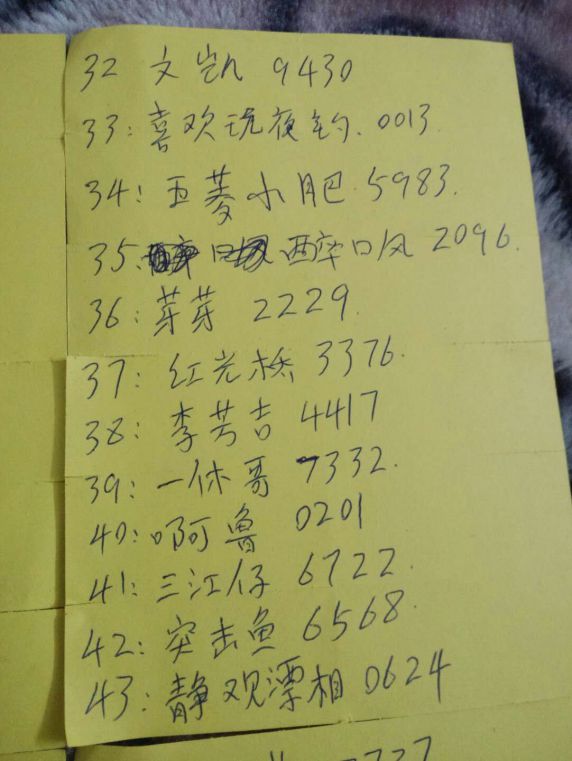 32 文凯 9430
33: 喜欢玩夜钓. 0013.
34: 五菱小肥. 5983.
35: 醉口风 2096.
36: 芽芽 2229.
37: 红光桥 3376.
38: 李芳吉 4417
39: 一休哥 7332.
40: 啊鲁 0201
41: 三江仔 6722.
42: 突击鱼 6568.
43: 静观漂相 0624